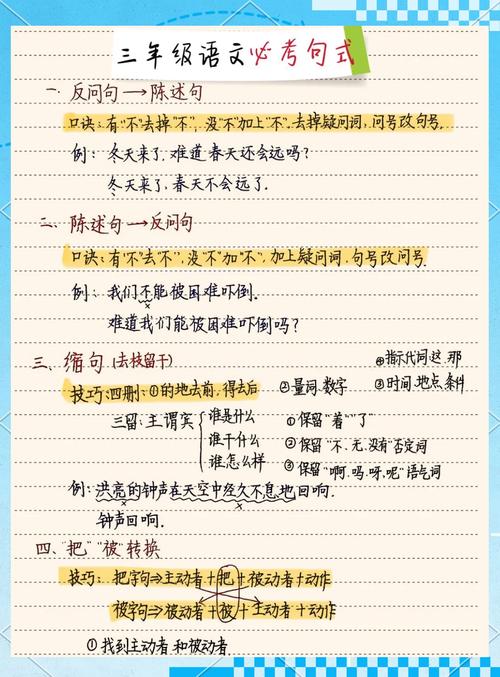 三年级语文必考句式
一、反问句→陈述句
口诀:有"不"去掉"不",没"不"加上"不".去掉疑问词,问号改句号.
例:冬天来了,难道春天还会远吗?
冬天来了,春天不会远了.
二、陈述句→反问句
口诀:有"不"去"不",没"不"加"不",加上疑问词,句号改问号.
例:我们不能被困难吓倒.
难道我们能被困难吓倒吗?
三、缩句(去枝留干)
④指示代词这.那
技巧:四删:①的地去前,得去后 ②量词.数字 ③时间.地点.条件
三留:主谓宾
谁是什么
谁干什么
谁怎么样
①保留"着""了"
②保留"不、无.没有"否定词
③保留"啊.吗.呀.呢"语气词
例:洪亮的钟声在天空中经久不息地回响.
钟声回响.
四、"把""被"转换
技巧:把字句⇒主动者+把+被动者+动作
被字句⇒被动者+被+主动者+动作
①找到主动者 和被动者